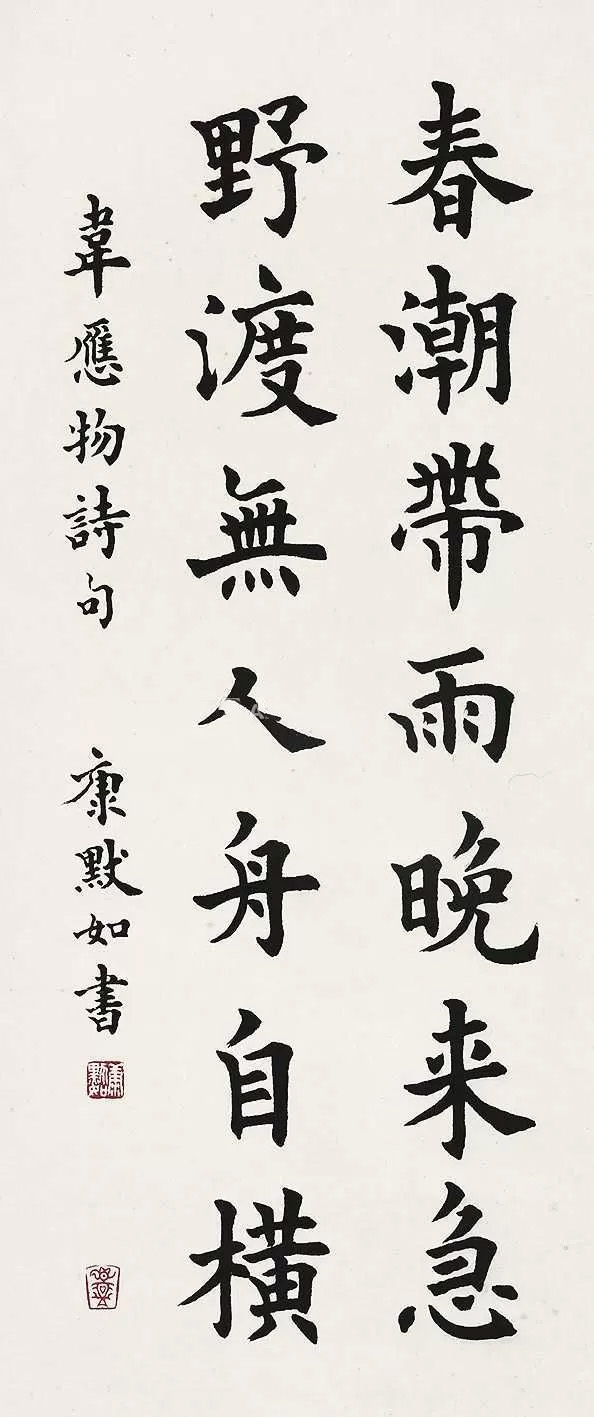 春潮帶雨晚来急
野渡無人舟自橫
韋應物詩句 康默如書